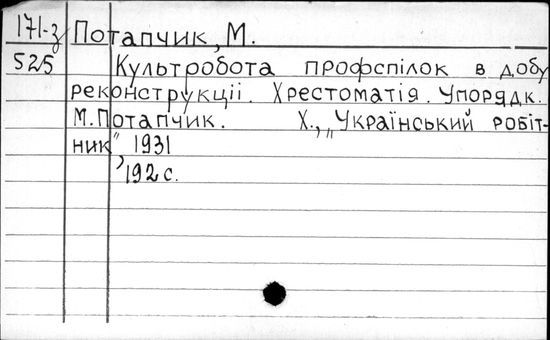 171-з Потапчик, М.
525 Культробота профспілок в добу
реконструкціі. Хрестоматія. Упорядк.
М. Потапчик. Х., „Український робіт-
ник", 1931
192 с.